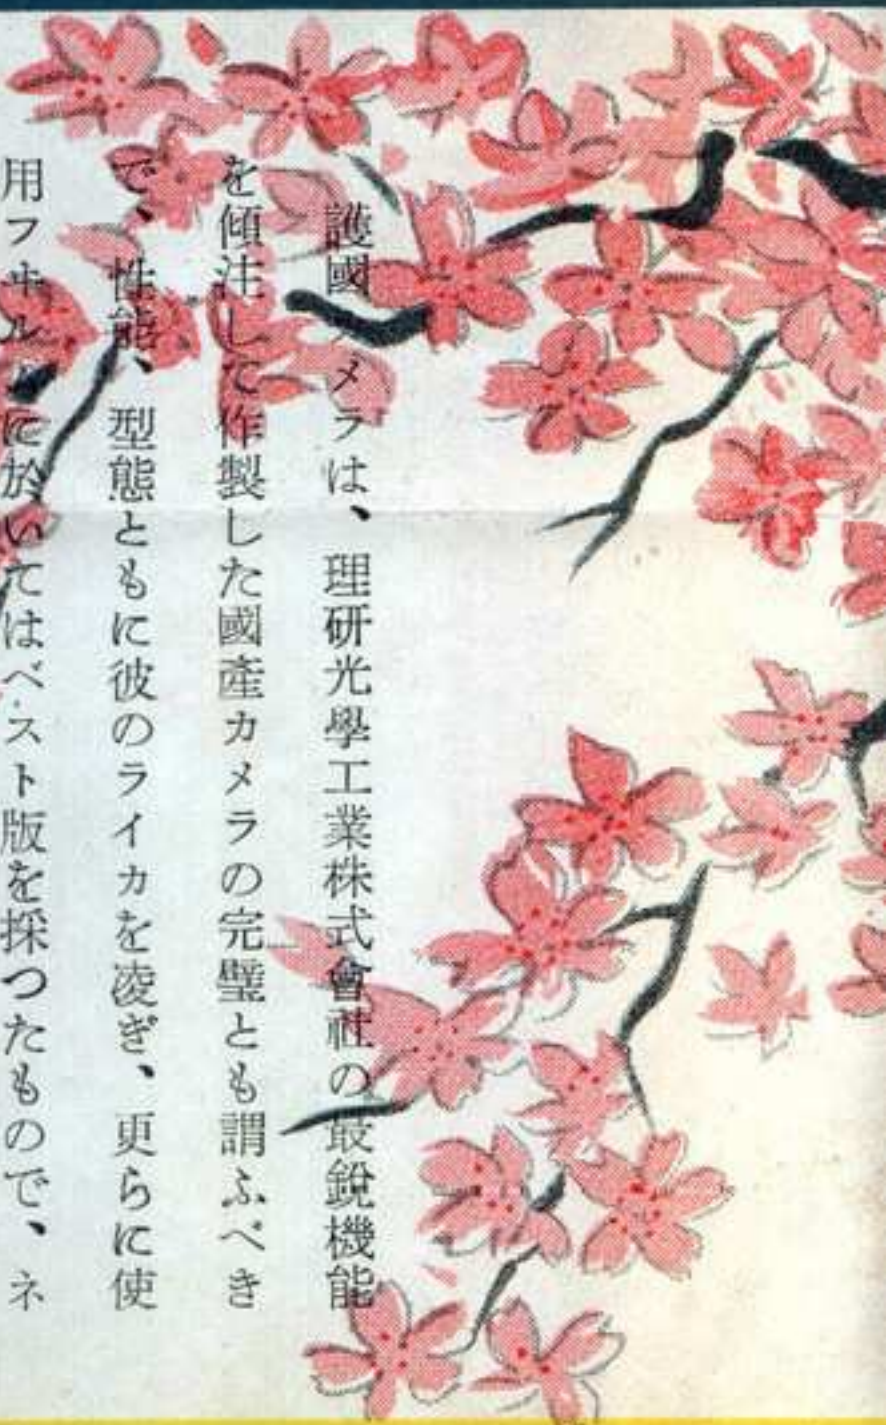 護國カメラは、理研光學工業株式會社の最銳機能
を傾注して作製した國產カメラの完璧とも謂ふべき
で、性能、型態ともに彼のライカを凌ぎ、更らに使
用フヰルムに於いてはベスト版を採つたもので、ネ